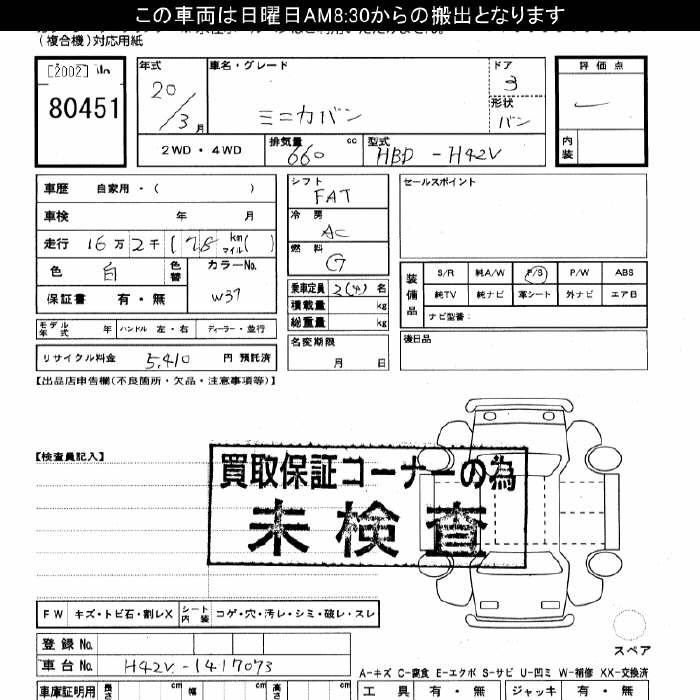 この車両は日曜日AM8:30からの搬出となります
(複合機)対応用紙
[2002]
80451
年式 20/3月
車名・グレード ミニカバン
ドア 3
形状 バン
評価点 —
内装
2WD・4WD
排気量 660 cc
型式 HBD-H42V
車歴 自家用・( )
車検 年 月
走行 16万2千178 km マイル( )
色 白 色替
カラーNo. W37
保証書 有・無
シフト FAT
冷房 AC
燃料 G
乗車定員 2(4)名
積載量 kg
総重量 kg
名変期限 月 日
セールスポイント
装備品
S/R 純A/W P/S P/W ABS
純TV 純ナビ 革シート 外ナビ エアB
ナビ型番:
後日品
モデル年式 年 ハンドル 左・右 ディーラー・並行
リサイクル料金 5,410 円 預託済
【出品店申告欄(不良箇所・欠品・注意事項等)】
【検査員記入】
買取保証コーナーの為
未検査
FW キズ・トビ石・割レX シート内装 コゲ・穴・汚レ・シミ・破レ・スレ
スペア
登録No.
車台No. H42V-1417073
A-キズ C-腐食 E-エクボ S-サビ U-凹ミ W-補修 XX-交換済
車庫証明用 長さ cm 幅 cm 高さ cm
工具 有・無 ジャッキ 有・無